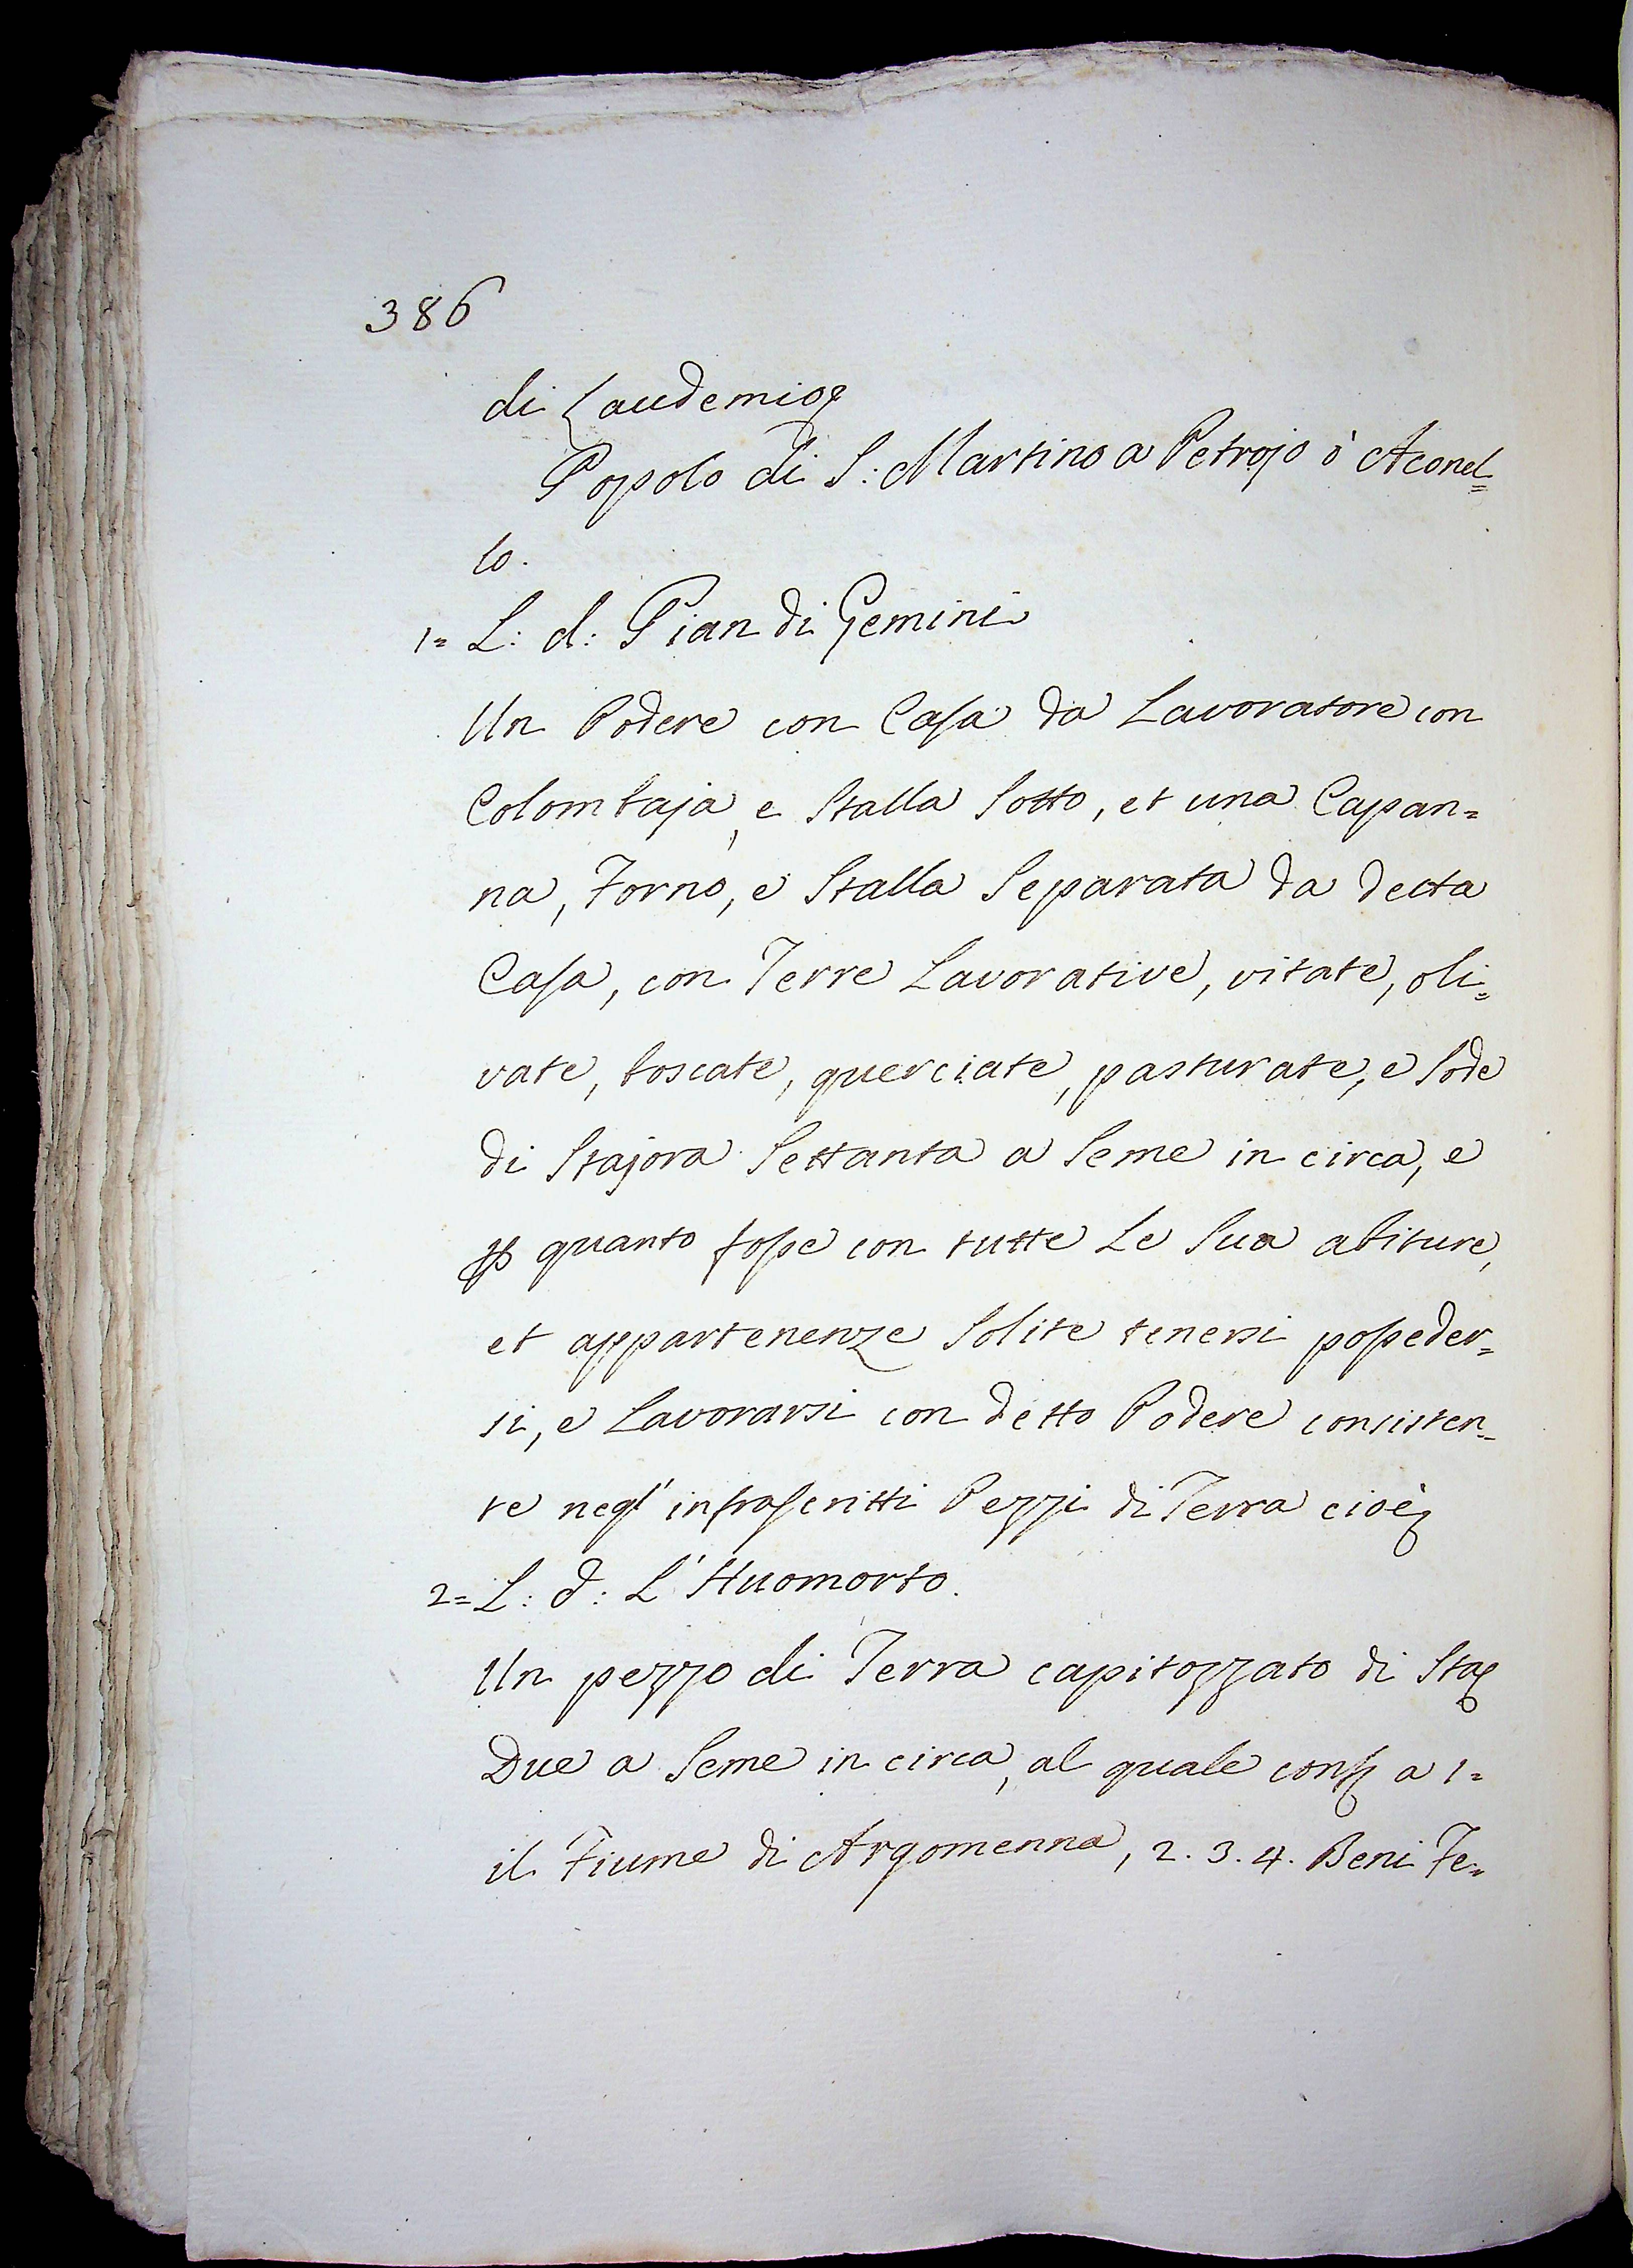 386
di Laudemio
Popolo di S: Martino a Petrojo ò Aconel=
lo.
1= L: d: Pian di Gemini
Un Podere con Casa da Lavoratore con
Colombaja, e Stalla Sotto, et una Capan=
na, Forno, e Stalla Separata da detta
Casa, con Terre Lavorative, vitate, oli=
vate, boscate, querciate, pasturate, e Sode
di Stajora Settanta a Seme in circa, e
ꝑ quanto fosse con tutte Le Sua abiture,
et appartenenze Solite tenersi posseder=
si, e Lavorarsi con detto Podere consisten=
te negl' infrascritti Pezzi di Terra cioè
2= L: d: L'Huomorto.
Un pezzo di Terra capitozzato di Sta
Due a Seme in circa, al quale conf a 1=
il Fiume di Argomenna, 2. 3. 4. Beni Fe=